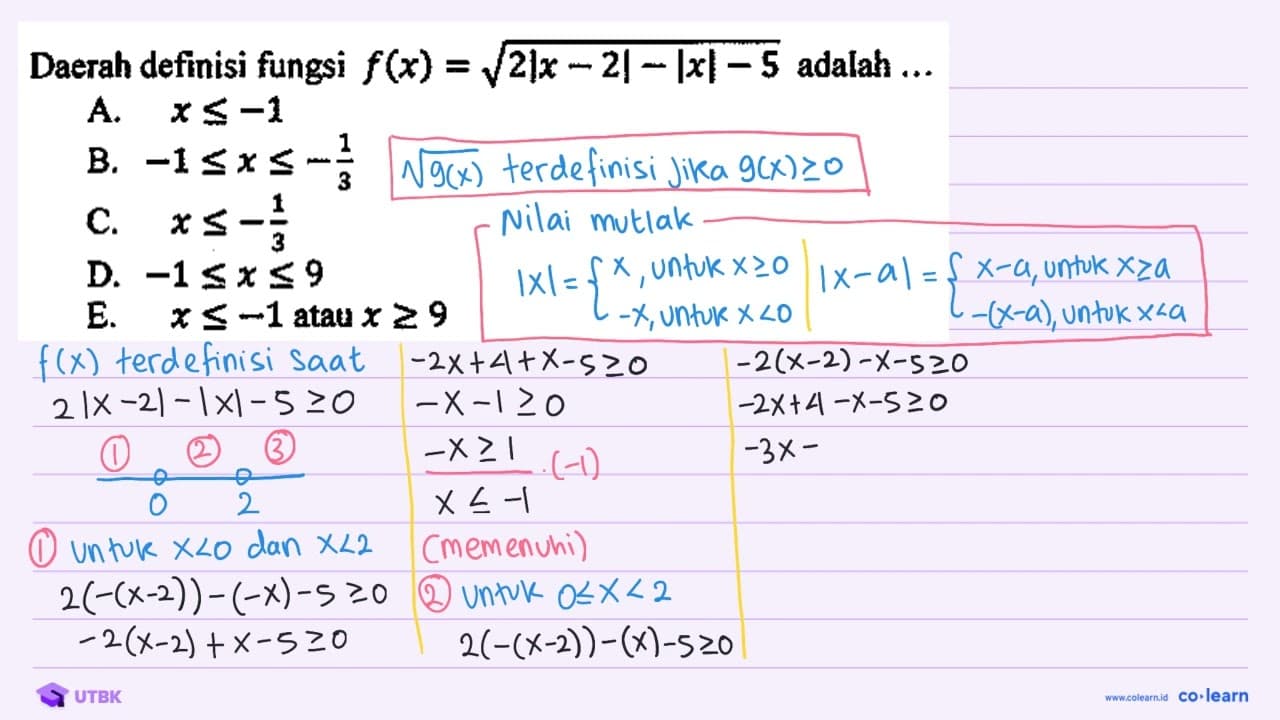 Daerah definisi fungsi f(x) = √2|x − 2| − |x| − 5 adalah ...
A. x ≤ −1
B. −1 ≤ x ≤ −1/3
C. x ≤ −1/3
D. −1 ≤ x ≤ 9
E. x ≤ −1 atau x ≥ 9
√g(x) terdefinisi jika g(x)≥0
Nilai mutlak
|x| = { x, untuk x≥0
-x, untuk x<0
|x-a| = { x-a, untuk x≥a
-(x-a), untuk x<a
f(x) terdefinisi saat
2|x-2|-|x|-5≥0
① ② ③
0 2
① untuk x<0 dan x<2
2(-(x-2))-(-x)-5≥0
-2(x-2)+x-5≥0
-2x+4+x-5≥0
-x-1≥0
-x≥1 .(-1)
x≤-1
(memenuhi)
② untuk 0≤x<2
2(-(x-2))-(x)-5≥0
-2(x-2)-x-5≥0
-2x+4-x-5≥0
-3x-
UTBK
www.colearn.id co·learn